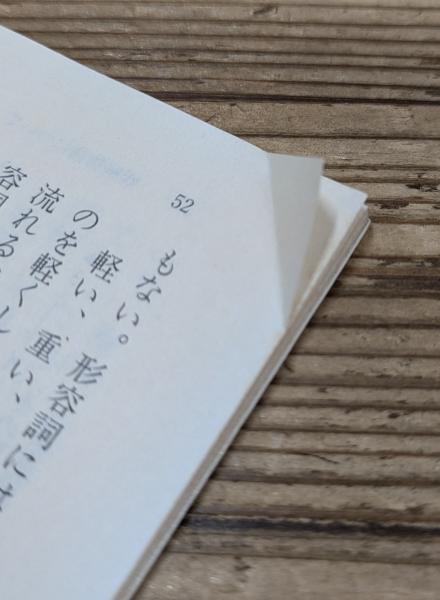 52
もない。形容詞には
軽い、重い、
のを軽くし
流れる
容詞